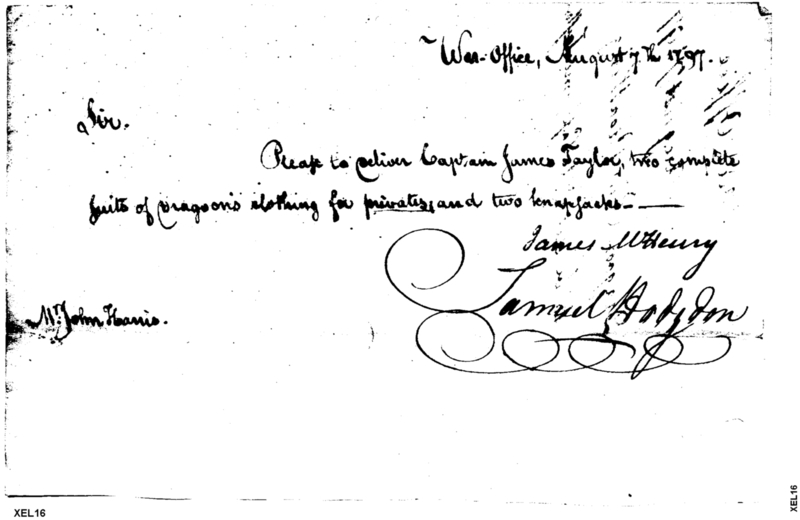 War-Office, August 7th 1797.
Sir.
Please to deliver Captain James Taylor, two complete
suits of dragoon's clothing for privates, and two knapsacks-
James McHenry
Samuel Hodgdon
Mr. John Harris.
XEL16
XEL16